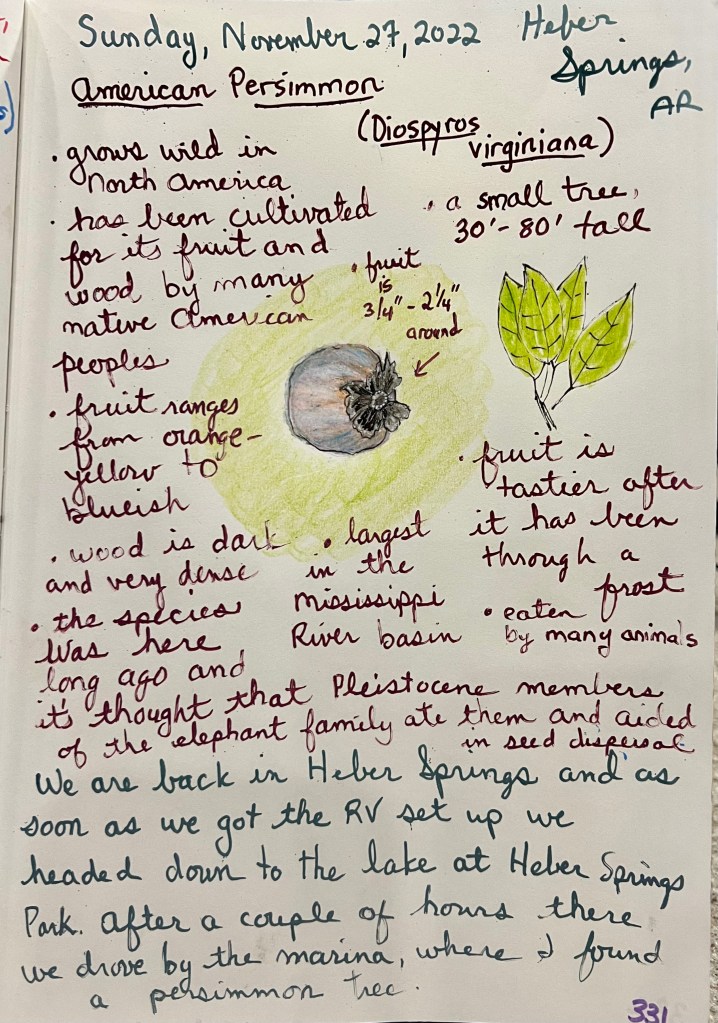 Sunday, November 27, 2022
Heber
Springs,
AR
American Persimmon
(Diospyros
virginiana)
• grows wild in
North America
• has been cultivated
for its fruit and
wood by many
native American
peoples
• a small tree,
30'-80' tall
• fruit
is
3/4" - 2 1/4"
around
• fruit ranges
from orange-
yellow to
blueish
• fruit is
tastier after
it has been
through a
frost
• wood is dark
and very dense
• largest
in the
Mississippi
River basin
• eaten
by many animals
• the species
was here
long ago and
it's thought that Pleistocene members
of the elephant family ate them and aided
in seed dispersal
We are back in Heber Springs and as
soon as we got the RV set up we
headed down to the lake at Heber Springs
Park. After a couple of hours there
we drove by the marina, where I found
a persimmon tree.
331